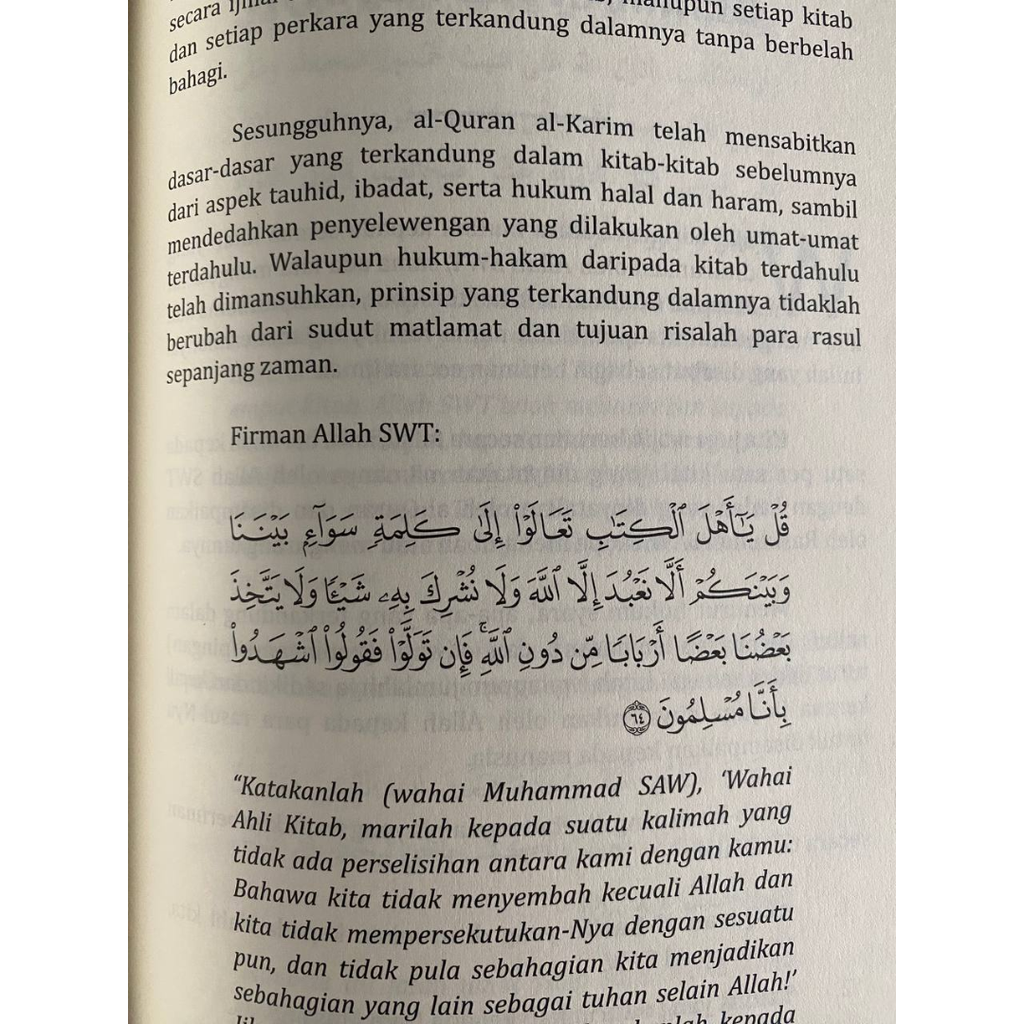 secara
maupun setiap kitab
dan setiap perkara yang terkandung dalamnya tanpa berbelah
bahagi.
Sesungguhnya, al-Quran al-Karim telah mensabitkan
dasar-dasar yang terkandung dalam kitab-kitab sebelumnya
dari aspek tauhid, ibadat, serta hukum halal dan haram, sambil
mendedahkan penyelewengan yang dilakukan oleh umat-umat
terdahulu. Walaupun hukum-hakam daripada kitab terdahulu
telah dimansuhkan, prinsip yang terkandung dalamnya tidaklah
berubah dari sudut matlamat dan tujuan risalah para rasul
sepanjang zaman.
Firman Allah SWT:
قُلْ يَـٰٓأَهْلَ ٱلْكِتَـٰبِ تَعَالَوْا۟ إِلَىٰ كَلِمَةٍ سَوَآءٍۭ بَيْنَنَا
وَبَيْنَكُمْ أَلَّا نَعْبُدَ إِلَّا ٱللَّهَ وَلَا نُشْرِكَ بِهِۦ شَيْـًٔا وَلَا يَتَّخِذَ
بَعْضُنَا بَعْضًا أَرْبَابًا مِّن دُونِ ٱللَّهِ ۚ فَإِن تَوَلَّوْا۟ فَقُولُوا۟ ٱشْهَدُوا۟
بِأَنَّا مُسْلِمُونَ ٦٤
“Katakanlah (wahai Muhammad SAW), ‘Wahai
Ahli Kitab, marilah kepada suatu kalimah yang
tidak ada perselisihan antara kami dengan kamu:
Bahawa kita tidak menyembah kecuali Allah dan
kita tidak mempersekutukan-Nya dengan sesuatu
pun, dan tidak pula sebahagian kita menjadikan
sebahagian yang lain sebagai tuhan selain Allah!’
kepada